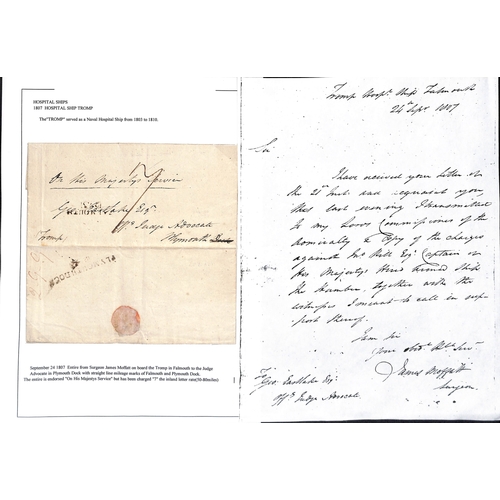 HOSPITAL SHIPS
1807 HOSPITAL SHIP TROMP
The"TROMP" served as a Naval Hospital Ship from 1803 to 1810.
On His Majestys Service
7
Geo Eastlake Esqr
FALMOUTH
Offs Judge Advocate
Tromp
Plymouth Dock
PLYM.DOCK
September 24 1807 Entire from Surgeon James Moffatt on board the Tromp in Falmouth to the Judge
Advocate in Plymouth Dock with straight line mileage marks of Falmouth and Plymouth Dock.
The entire is endorsed "On His Majestys Service" but has been charged "7" the inland letter rate(50-80miles)
Tromp Hospl Ship Falmouth
24 Sepr 1807
Sir
I have received your letter of
the 21st Inst and acquaint you,
that last evening I transmitted
to my Lords Commissioners of the
Admiralty a Copy of the charges
against Esqr Captain of
His Majestys Hired Armed Ship
the Humber, together with the
witnesses I meant to call in sup
port thereof.
I am Sir
Your Obdt Hble Servt
James Moffatt
Surgeon
To
Geo. Eastlake Esqr
Offs Judge Advocate